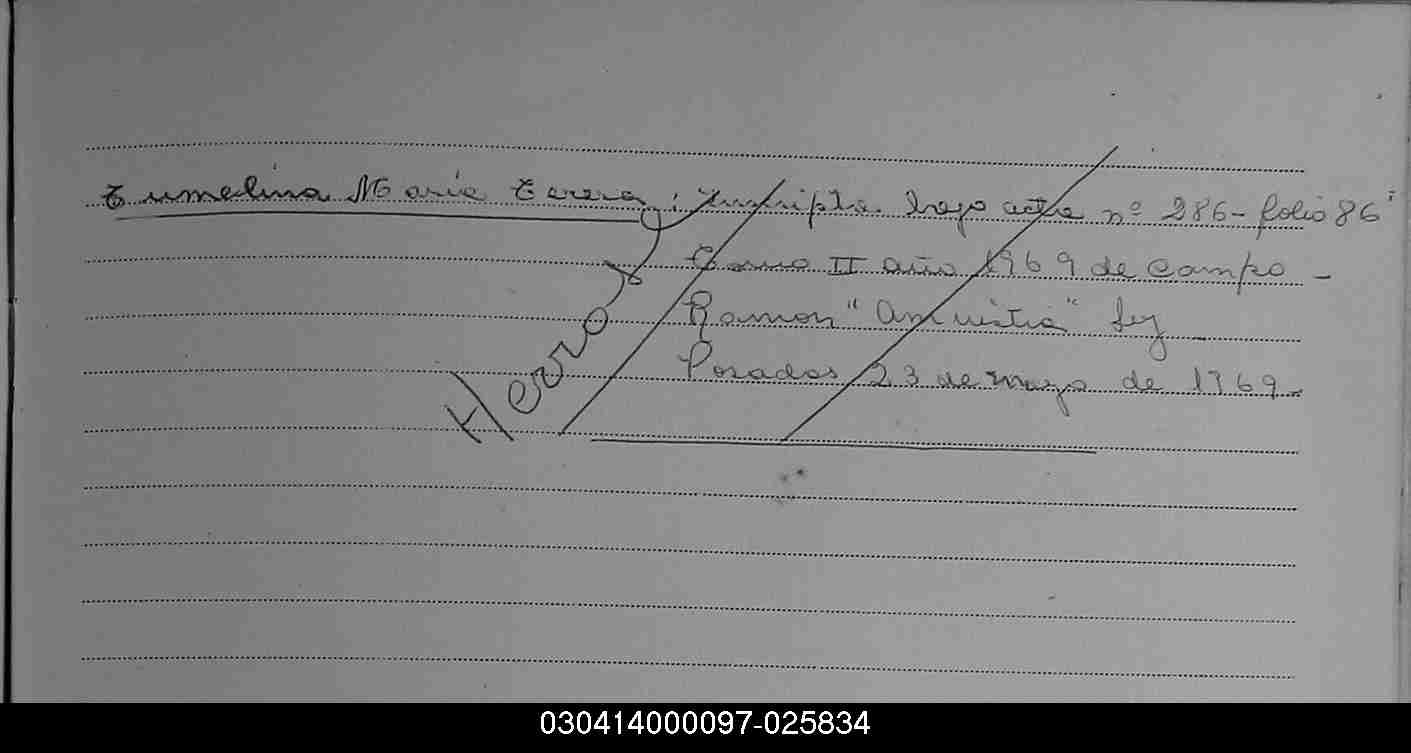 Tumelina Maria Teresa: Inscripta bajo acta nº 286 - folio 86
Tomo II año 1969 de Campo -
Ramon "Amnistia" ley
Posadas 23 de mayo de 1969 -
Herror
030414000097-025834